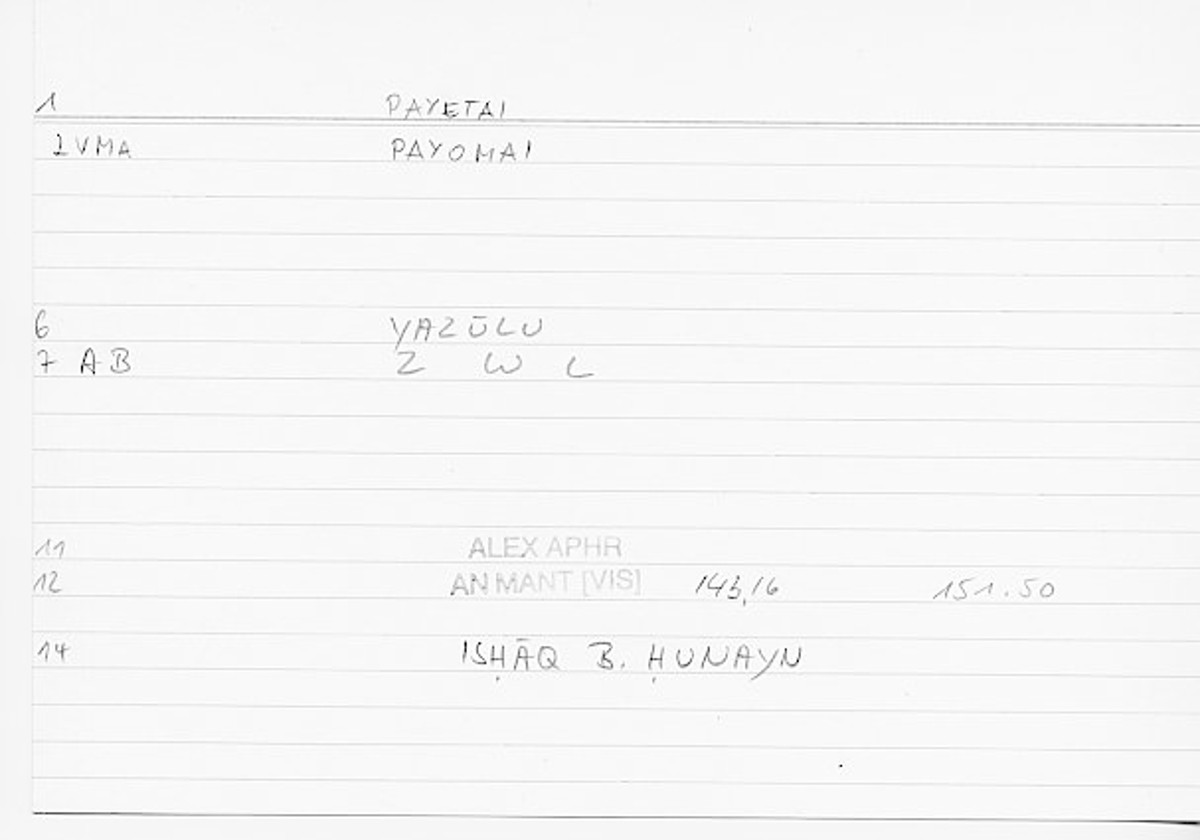 1 PAYETAI
2 VMA PAYOMAI
6 YAZŪLU
7 AB Z W L
11 ALEX APHR
12 AN MANT [VIS] 143,16 151.50
14 ISḤĀQ B. ḤUNAYN